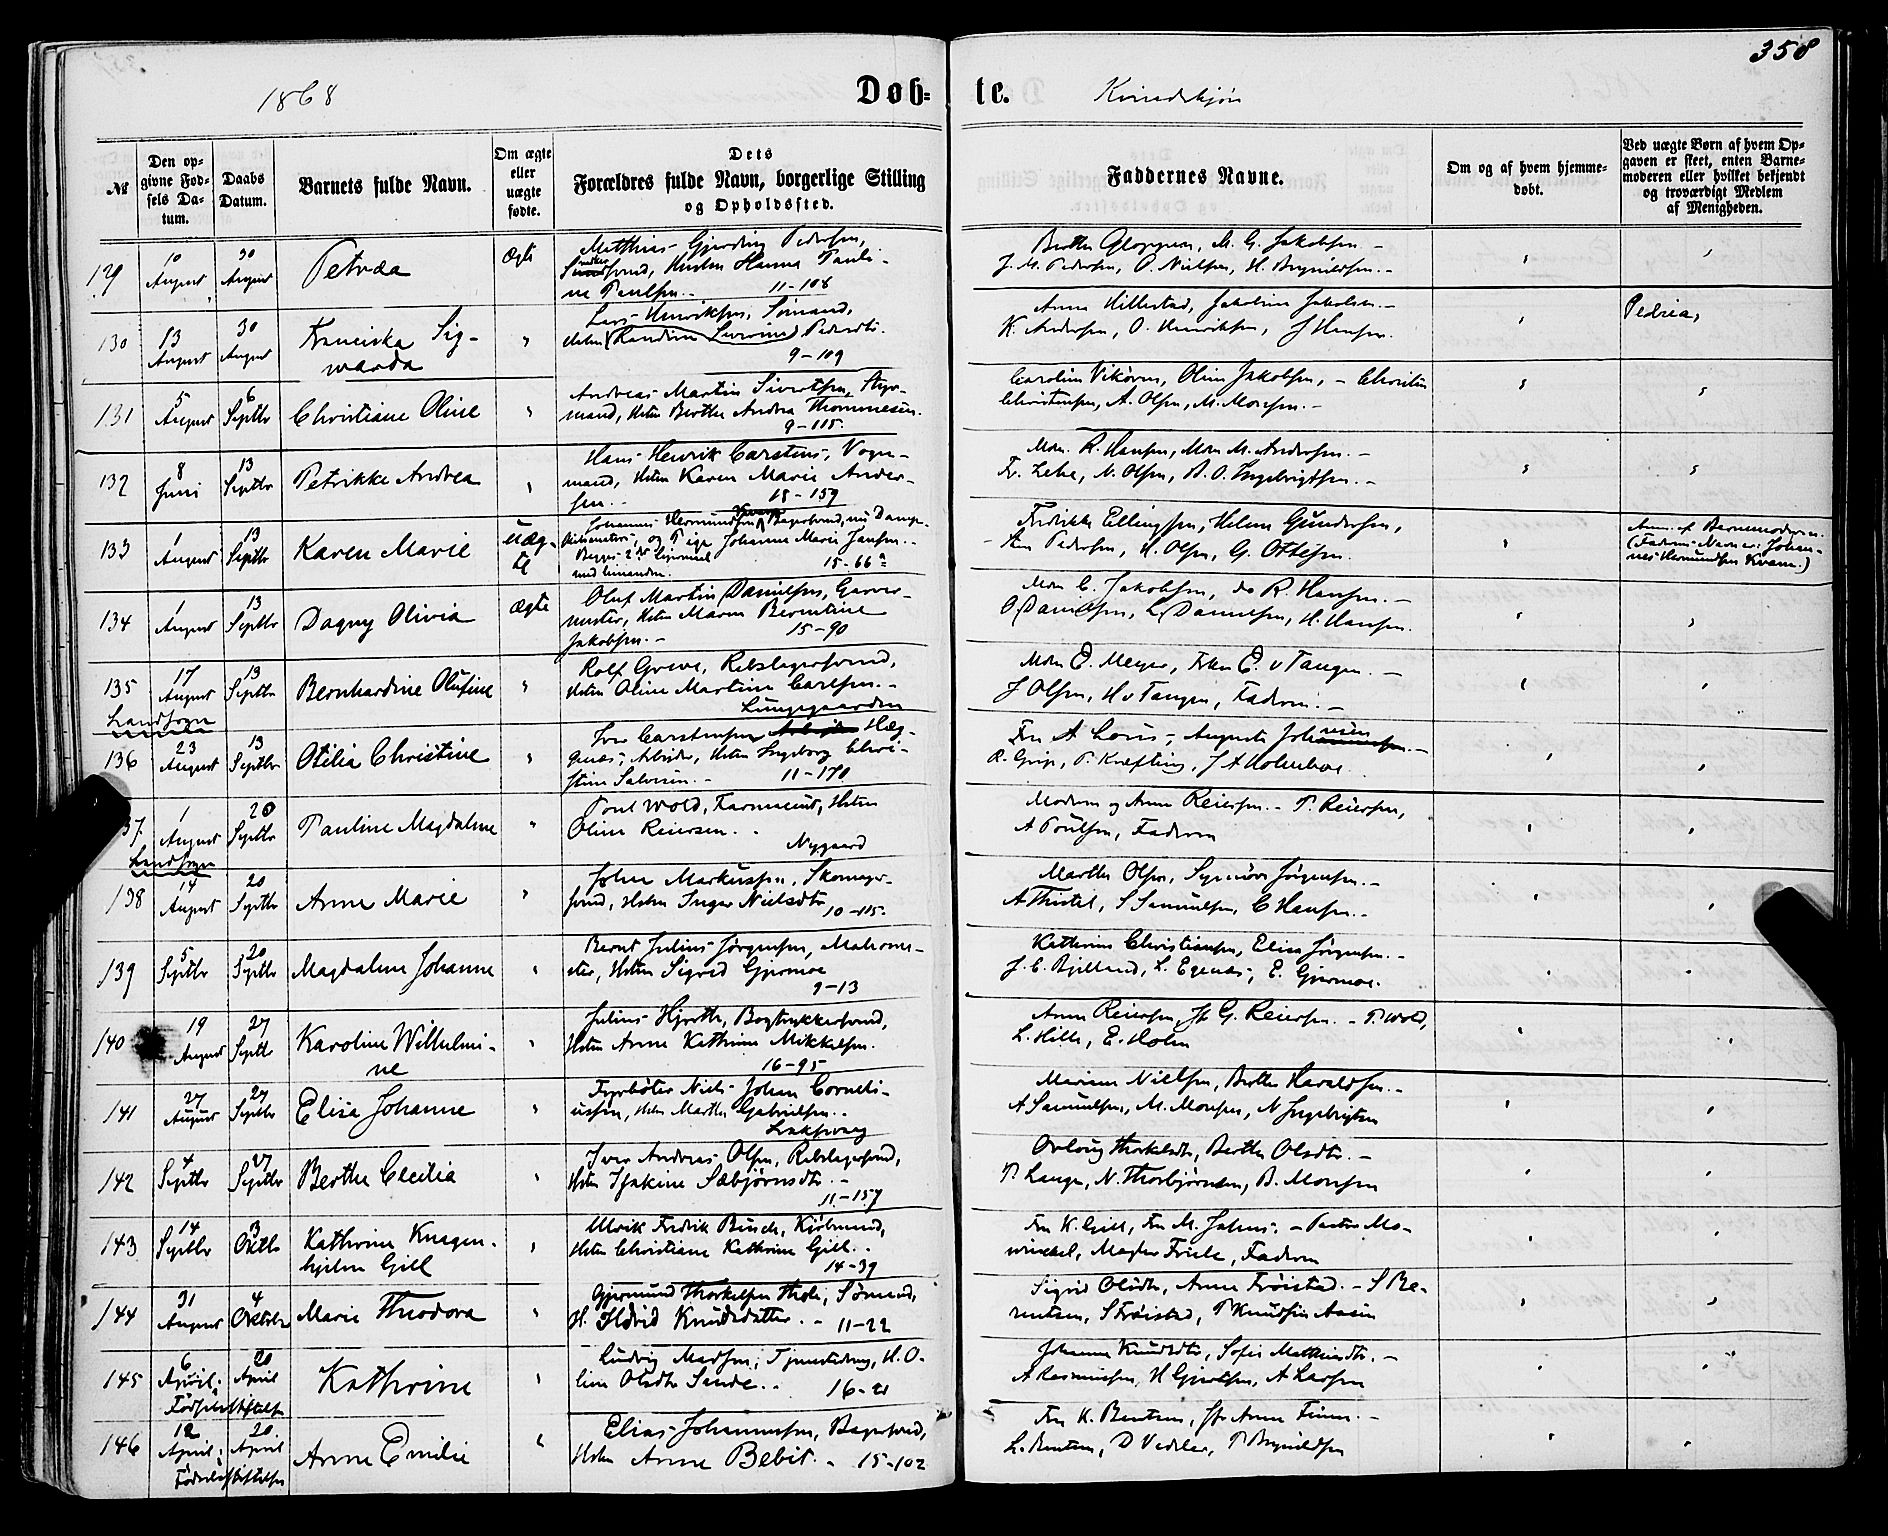 358
1868
Døb-
te.
Kvindekjøn
No
Den op-
givne Fød-
sels Da-
tum.
Daabs
Datum.
Barnets fulde Navn.
Om ægte
eller
uægte
fødte.
Dets
Forældres fulde Navn, borgerlige Stilling
og Opholdssted.
Faddernes Navne.
Om og af hvem hjemme-
døbt.
Ved uægte Børn af hvem Op-
gaven er skeet, enten Barne-
moderen eller hvilket bekjendt
og troværdigt Medlem
af Menigheden.
129 10 August 30 August Petrea Ægte
Matthias Gjerding Pedersen,
svend, Hustru Hanna Pauli-
ne Paulsen.. 11-108
Berthe Gloppen, M. G. Jakobsen -
J. M. Pedersen, O. Nielsen, H. Brynildsen.-
130 13 August 30 August Franciska Sig-
warda
Lars Henriksen, Sømand,
Hstru Randine Severine Pedersdtr.
9-109
Anna Hillestad, Jakobine Jakobsen -
K. Andersen, O. Henriksen, J Hansen.
Pedrea,
131 5 August 6 Septbr Christiane Oline
Andreas Martin Sivertsen, Styr-
mand, Hstru Berthe Andrea Thommesen.
9-115.
Caroline Vikøren, Oline Jakobsen, - Christine
Christensen, A. Olsen, M. Monsen.-
132 8 Juni 13 Septbr Petrikke Andrea
Hans Henrik Carstens, Vogn-
mand, Hstru Karen Marie Ander-
sen.. 18-159
Mdm. R. Hansen, Mdm M. Andersen. -
N. Olsen, A. O. Ingebrigtsen. -
133 1 August 13 Septbr Karen Marie uæg-
te
Johannes Hermundsen Kvam Bagersvend, nu Damp-
og Pige Johanne Marie Jansen..
Begges 2det Leiermaal
med hinanden. 15-66a
Fredrikke Ellingsen, Helene Gundersen,
Pedersen, H. Olsen, G. Ottesen.
Anm. af Barnemoderen.
(Faderens Navn er: Johan-
nes Hermundsen Kvam.)
134 1 August 13 Septbr Dagny Olivia ægte
Oluf Martin Danielsen, Garver-
mester, Hstru Maren Berentine
Jakobsen. - 15-90
Mdm C. Jakobsen, do R. Hansen. -
O Danielsen, L Danielsen, H. Hansen.
135 17 August 13 Septbr Bernhardine Olufine
Landsogn
Rolf Greve, Rebslagersvend,
Hstru Oline Martine Carlsen. -
Lungegaarden
Mdm E. Meyer, Frkn E. v Tangen. -
J Olsen, H v Tangen, Faderen. -
136 23 August 13 Septbr Otilia Christine
Iver Carstensen Hæg-
Arbeider, Hstru Ingeborg Chri-
stine Salvesen. - 11-170
Fru A Louis, Augusta
R. Grip, P. Kræfting, J A Holmboe
137 1 August 20 Septbr Pauline Magdalene
Landsogn
Poul Wold, Hstru
Oline Reiersen..
Nygaard
Moderen og Anna Reiersen. - P. Reiersen,
A Poulsen, Faderen
138 14 August 20 Septbr Anne Marie
Johan Markussen, Skomager-
svend, Hstru Inger Nielsdtr
10-115.
Marthe Olsen, Jørgensen.-
A Thistel, S Samuelsen, C Hansen..
139 5 Septbr 20 Septbr Magdalene Johanne
Bernt Julius Jørgensen, Malerme-
ster, Hstru Sigrid Gjermoe
9-13
Kathrine Christiansen, Elisa Jørgensen. -
J. C. Bjelland, L. Egenæs, E. Gjermoe.
140 19 August 27 Septbr Karoline Wilhelmi-
ne
Julius Hjorth, Bogtrykkersvend,
Hstru Anne Kathrine Mikkelsen.
16-95
Anna Reiersen, Jfr G. Reiersen. - P. Wold,
L. Hille, E. Holm
141 27 August 27 Septbr Elisa Johanne
Fyrbøter Niels Johan Corneli-
ussen, Hstru Marthe Gabrielsen..
Laksevaag
Mariane Nielsen, Berthe Haraldsen. -
A Samuelsen, M. Monsen, N Ingebrigtsen
142 4 Septbr 27 Septbr Berthe Cecilia
Iver Andreas Olsen, Rebslagersvend,
Hstru Isakine Sæbjørnsdtr. -
11-157
Ovloug Thorkelsdtr, Berthe Olsdtr. -
P. Lange, N. Thorbjørnsen, B. Monsen
143 14 Septbr 3 Octbr Kathrine Knagen-
hjelm Gill
Ulrik Fredrik Busch, Kjøbmand,
Hstru Christiane Kathrine Gill..
14-39
Fru K. Gill, Fru M. Jahns, - Pastor Mo-
winckel, Mægler Friele, Faderen
144 31 August 4 Octobr Marie Theodora
Gjermund Thorkelsen Hole, Sømand,
H. Ildrid Knudsdatter. - 11-22
Sigrid Olsdtr, Anna Frøistad. - S Be-
rentsen, S Frøistad, P Knudsen Aasen
145 6 April. 20 April Kathrine
Fødselsstiftelsen
Ludvig Madsen, Tjenestedreng, H. O-
line Olsdtr Sande.. 16-21
Johanne Knudsdtr, Sofie Matthiasdtr. -
A Rasmussen, H Gjertsen, A Larsen
146 12 April. 20 April Anne Emilie
Fødselsstiftelsen
Elias Johannessen, Bagersvend,
Hstru Anne Bebit. - 15-102
Fru K. Bentsen, Jfr Anne Finne. -
L. Bentsen, D Vedeler, P Brynildsen